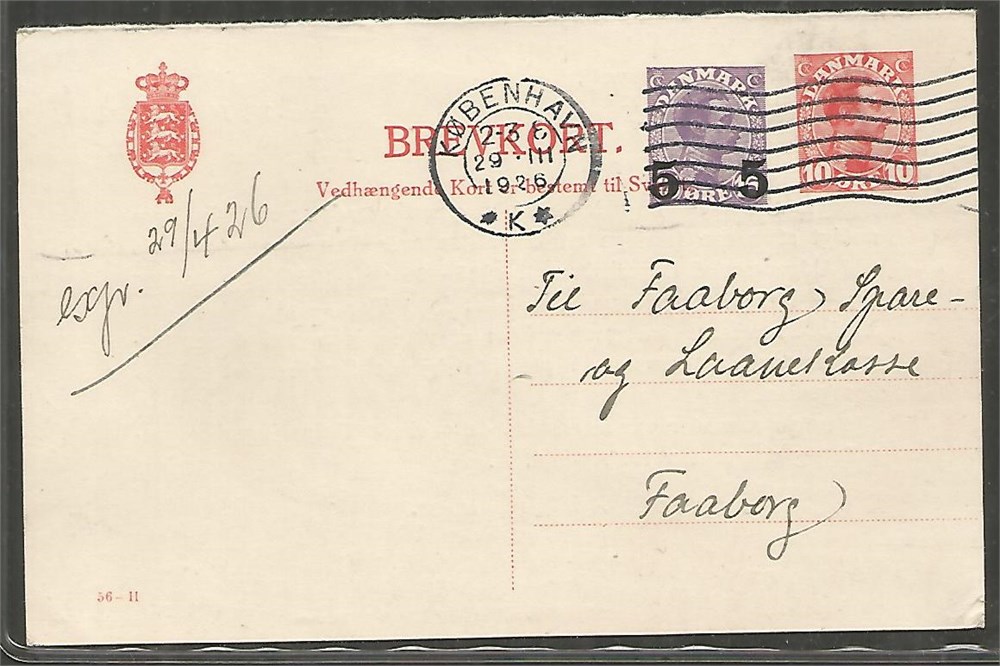 BREVKORT.
Vedhængende Kort er bestemt til Sv
KØBENHAVN
2-3 E
29 · III
1926
* K *
DANMARK
5 5
ØRE
DANMARK
10 ØRE 10
expr. 29/4 26
Til Faaborg Spare-
og Laanekasse
Faaborg
56-11